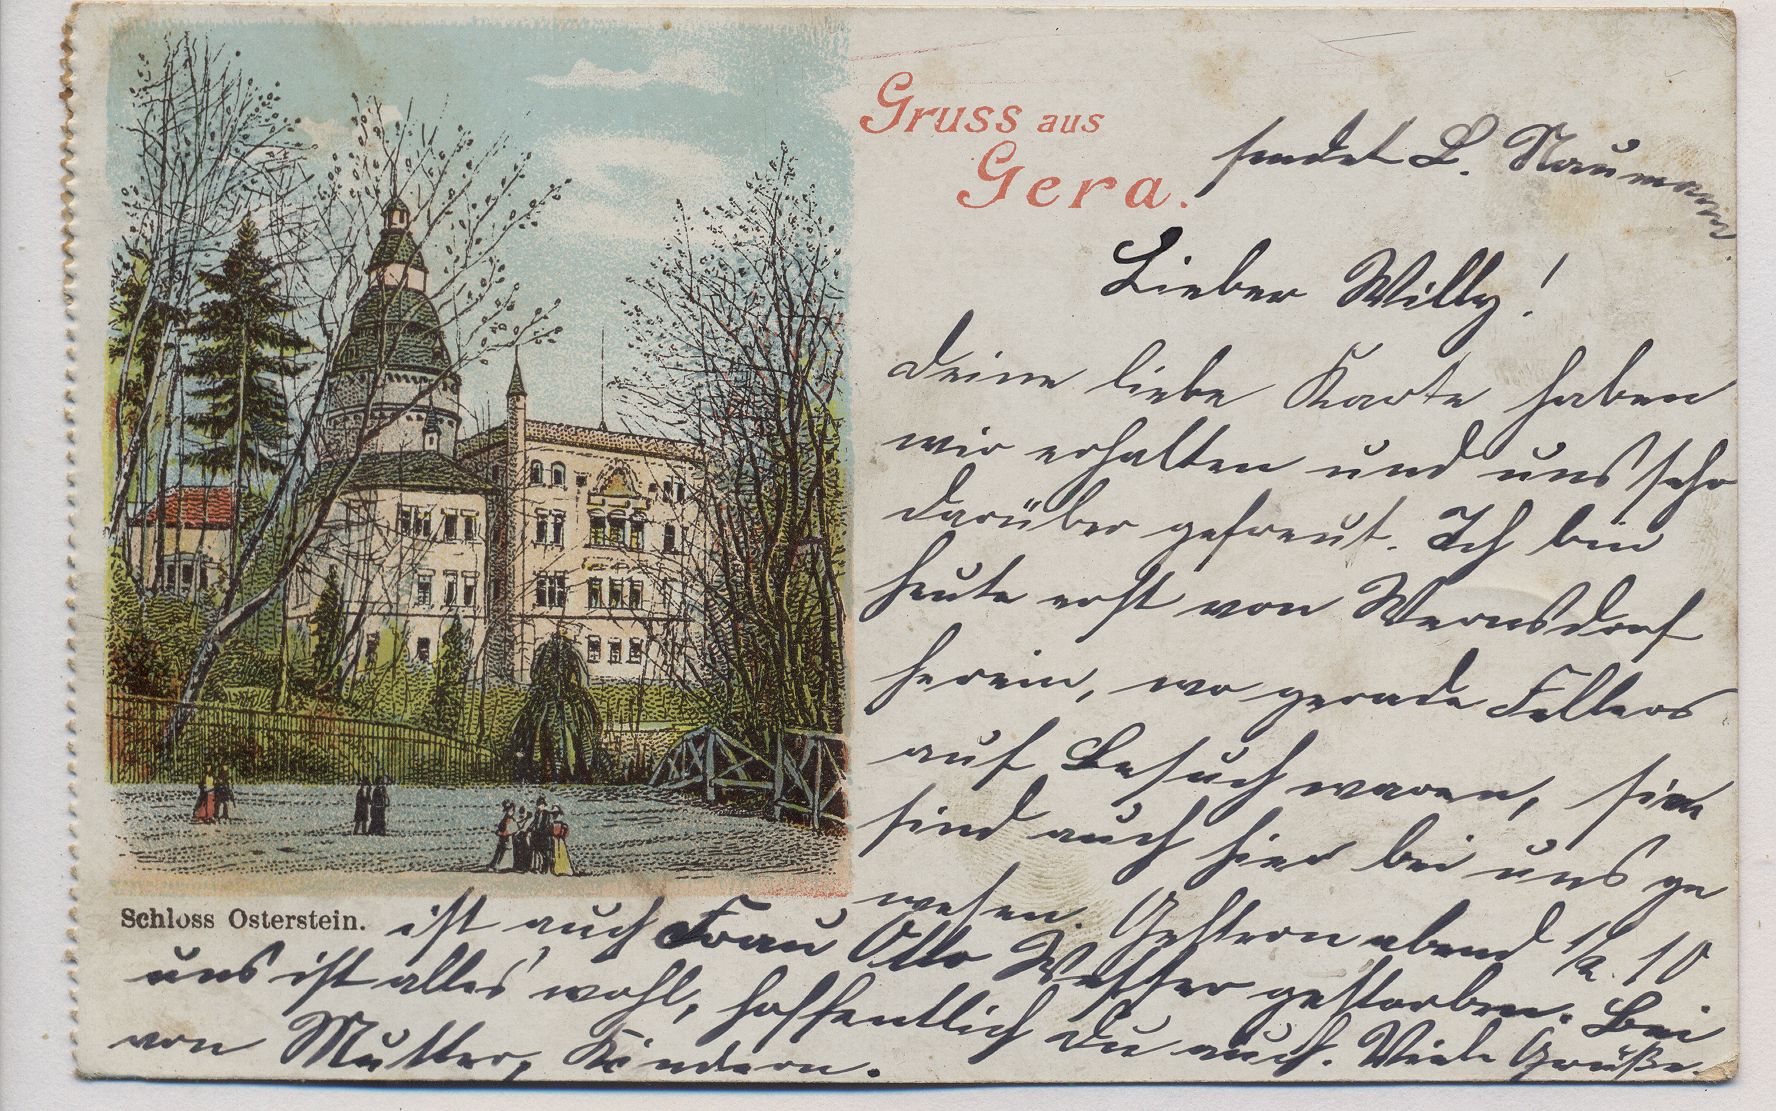 Gruss aus
Gera.
sendet L. Naumann.
Lieber Willy!
Deine liebe Karte haben
wir erhalten und uns sehr
darüber gefreut. Ich bin
heute erst von Wernsdorf
herein, wo gerade Fellers
auf Besuch waren, sie
sind auch hier bei uns ge
wesen. Gestern abend 1/2 10
Schloss Osterstein.
ist auch Frau Otto Weßer gestorben. Bei
uns ist alles wohl, hoffentlich Du auch. Viele Grüße.
von Mutter, Kindern.